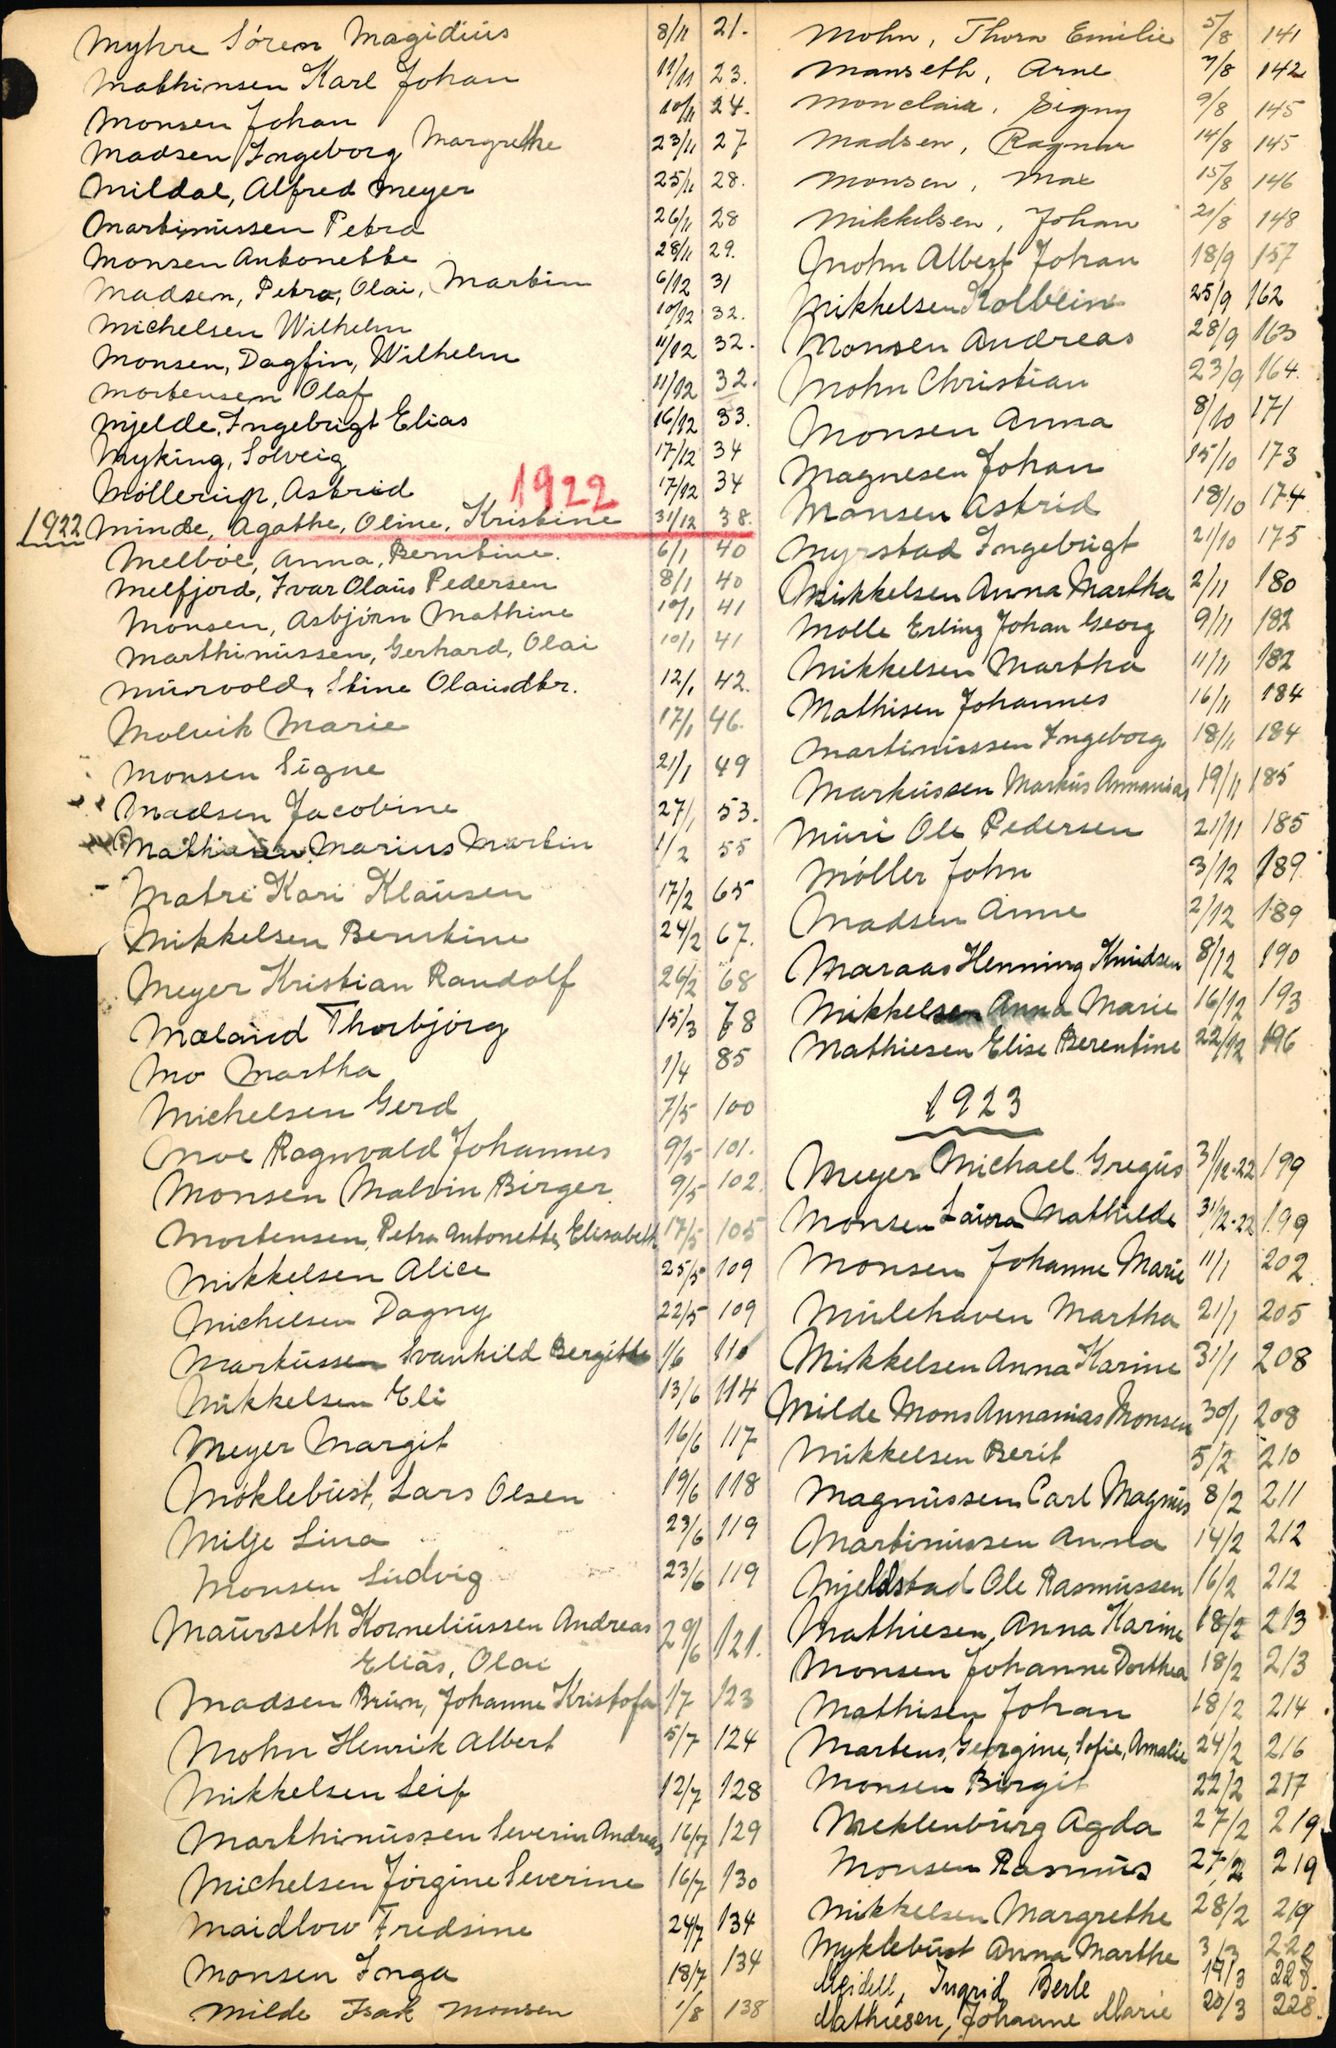 Myhre Sören Magidius 8/11 21.
Mathinsen Karl Johan 11/11 23.
Monsen Johan 10/11 24.
Madsen Ingeborg Margrethe 23/11 27
Mildal, Alfred Meyer 25/11 28.
Martinussen Petra 26/11 28
Monsen Antonette 28/11 29.
Madsen, Petra, Olai, Martin 6/12 31
Michelsen Wilhelm 10/12 32.
Monsen, Dagfin, Wilhelm 11/12 32.
Mortensen Olaf 11/12 32.
Mjelde, Ingebrigt Elias 16/12 33.
Myking, Solveig 17/12 34
Möllerup, Astrid 17/12 34
1922
1922 Minde, Agathe, Oline, Kristine 31/12 38.
Melböe, Anna, Berntine. 6/1 40
Melfjord, Ivar Olaus Pedersen 8/1 40
Monsen, Asbjörn Mathine 10/1 41
Marthinussen, Gerhard, Olai 10/1 41
Murvold, Stine Olausdtr. 12/1 42.
Molvik Marie 17/1 46.
Monsen Signe 21/1 49
Madsen Jacobine 27/1 53.
Mathiesen, Marius Martin 1/2 55
Matre Kari Klausen 17/2 65
Mikkelsen Berntine 24/2 67.
Meyer Kristian Randolf 26/2 68
Mæland Thorbjörg 15/3 78
Mo Martha 1/4 85
Michelsen Gerd 7/5 100
Moe Ragnvald Johannes 9/5 101.
Monsen Malvin Birger 9/5 102.
Mortensen, Petra Antonette, Elisabeth 17/5 105
Mikkelsen Alice 25/5 109
Michelsen Dagny 22/5 109
Markussen Svanhild Bergitte 1/6 110
Mikkelsen Eli 13/6 114
Meyer Margit 16/6 117
Möklebust, Lars Olsen 19/6 118
Milje Lina 23/6 119
Monsen Ludvig 23/6 119
Maurseth Korneliussen Andreas 29/6 121.
Elias, Olai
Madsen Brun, Johanne Kristofa 1/7 123
Mohn Henrik Albert 5/7 124
Mikkelsen Leif 12/7 128
Marthinussen Severin Andreas 16/7 129
Michelsen Jörgine Severine 16/7 130
Maidlow Fredsine 24/7 134
Monsen Inga 18/7 134
Milde Isak Monsen 1/8 138
Mohn, Thora Emilie 5/8 141
Manseth, Arne 7/8 142
Monclair, Signy 9/8 145
Madsen, Ragnar 14/8 145
Monsen, Max 15/8 146
Mikkelsen, Johan 21/8 148
Mohn Albert Johan 18/9 157
Mikkelsen Kolbein 25/9 162
Monsen Andreas 28/9 163
Mohn Christian 23/9 164.
Monsen Anna 8/10 171
Magnesen Johan 15/10 173
Monsen Astrid 18/10 174
Myrstad Ingebrigt 21/10 175
Mikkelsen Anna Martha 2/11 180
Molle Erling Johan Georg 9/11 182
Mikkelsen Martha 11/11 182
Mathisen Johannes 16/11 184
Martinussen Ingeborg 18/11 184
Markussen Markus Annanias 19/11 185
Muri Ole Pedersen 21/11 185
Möller John 3/12 189
Madsen Anne 2/12 189
Maraas Henning Knudsen 8/12 190
Mikkelsen Anna Marie 16/12 193
Mathiesen Elise Berentine 22/12 196
1923
Meyer Michael Gregus 31/12-22 199
Monsen Laura Mathilde 31/12-22 199
Monsen Johanne Marie 11/1 202
Mulehaven Martha 21/1 205
Mikkelsen Anna Karine 31/1 208
Milde Mons Annanias Monsen 30/1 208
Mikkelsen Berit 5/2 210
Magnussen Carl Magnus 8/2 211
Martinussen Anna 14/2 212
Mjeldstad Ole Rasmussen 16/2 212
Mathiesen, Anna Karine 18/2 213
Monsen Johanne Dorthea 18/2 213
Mathisen Johan 18/2 214
Martens, Georgine, Sofie, Amalie 24/2 216
Monsen Birgit 22/2 217
Meklenburg Agda 27/2 219
Monsen Rasmus 27/2 219
Mikkelsen Margrethe 28/2 219
Myklebust Anna Marthe 3/3 222
Meidell, Ingrid Berle 19/3 228.
Mathiesen, Johanne Marie 20/3 228.